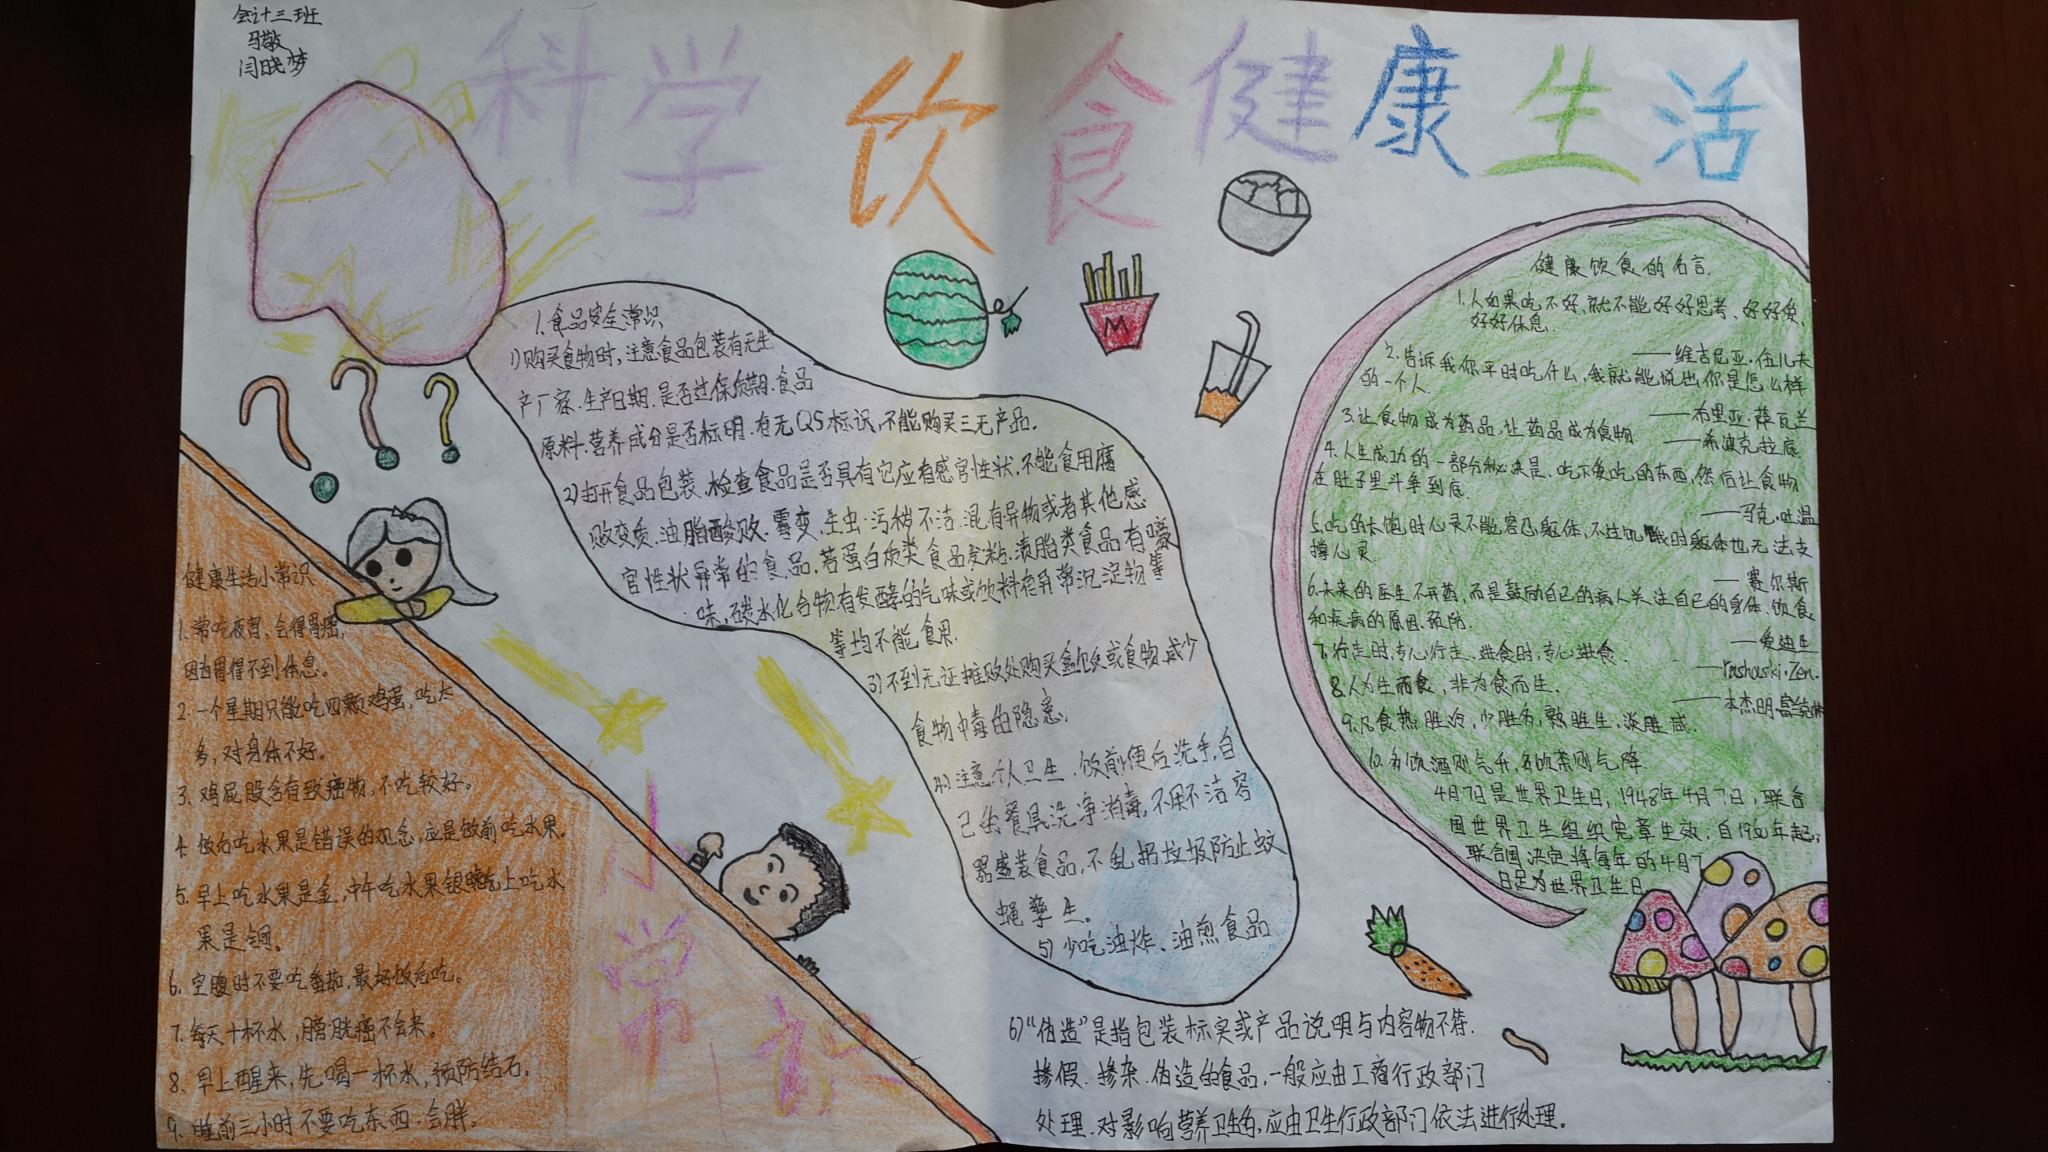 会计三班
马敬
闫晓梦
科学饮食健康生活
1.食品安全常识
1)购买食物时,注意食品包装有无生
产厂家.生产日期.是否过保质期.食品
原料.营养成分是否标明.有无QS标识,不能购买三无产品.
2)打开食品包装.检查食品是否具有它应有感官性状,不能食用腐
败变质.油脂酸败.霉变.生虫.污秽不洁.混有异物或者其他感
官性状异常的食品.若蛋白质类食品发粘.渍脂类食品有嚎
味,碳水化合物有发酵的气味或饮料有异常沉淀物等
等均不能食用.
3)不到无证摊贩处购买盒饭或食物.减少
食物中毒的隐患.
4)注意个人卫生.饭前便后洗手,自
己的餐具洗净消毒,不用不洁容
器盛装食品,不乱扔垃圾防止蚊
蝇孳生。
5)少吃油炸、油煎食品
6)"伪造"是指包装标实或产品说明与内容物不符.
掺假.掺杂.伪造的食品,一般应由工商行政部门
处理.对影响营养卫生的,应由卫生行政部门依法进行处理。
健康生活小常识
1.常吃夜宵,会得胃癌,
因为胃得不到休息。
2.一个星期只能吃四颗鸡蛋,吃太
多,对身体不好。
3.鸡屁股含有致癌物,不吃较好。
4.饭后吃水果是错误的观念,应是饭前吃水果。
5.早上吃水果是金,中午吃水果银晚上吃水
果是铜。
6.空腹时不要吃番茄,最好饭后吃。
7.每天十杯水,膀胱癌不会来。
8.早上醒来,先喝一杯水,预防结石。
9.睡前三小时不要吃东西.会胖。
小常识
M
健康饮食的名言.
1.人如果吃不好,就不能好好思考、好好爱、
好好休息.
——维吉尼亚·伍儿夫
2.告诉我你平时吃什么,我就能说出你是怎么样
的一个人.
——布里亚·萨瓦兰
3.让食物成为药品,让药品成为食物
——希波克拉底
4.人生成功的一部分秘诀是,吃下爱吃的东西,然后让食物
在肚子里斗争到底.
——马克·吐温
5.吃的太饱时心灵不能容忍躯体,不过饥饿时躯体也无法支
撑心灵.
——赛尔斯
6.未来的医生不开药,而是鼓励自己的病人关注自己的身体.饮食
和疾病的原因.预防.
——爱迪生
7.行走时,专心行走.进食时,专心进食.
8.人为生而食,非为食而生.
9.凡食热胜冷,少胜多,熟胜生,淡胜咸.
10.多饮酒则气升,多饮茶则气降.
4月7日是世界卫生日,1948年4月7日,联合
国世界卫生组织宪章生效.自1950年起,
联合国决定将每年的4月7
日定为世界卫生日